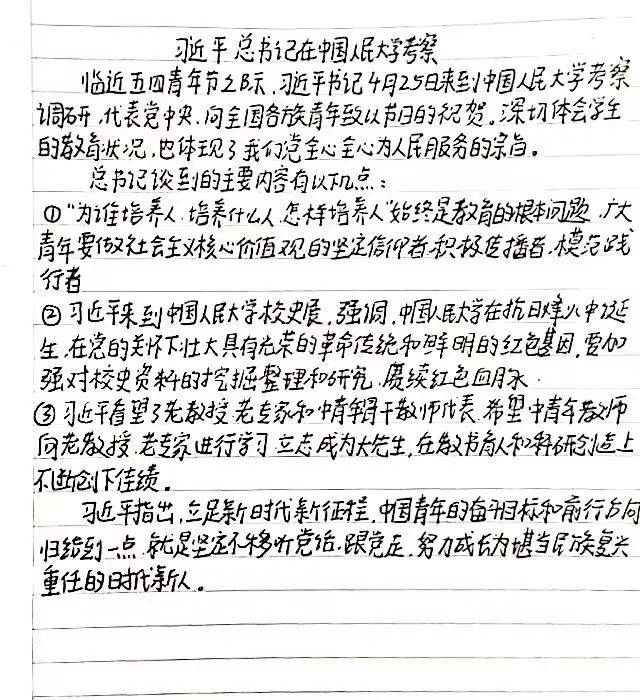 习近平总书记在中国人民大学考察
临近五四青年节之际,习近平书记4月25日来到中国人民大学考察
调研,代表党中央,向全国各族青年致以节日的祝贺。深切体会学生
的教育状况,也体现了我们党全心全心为人民服务的宗旨。
总书记谈到的主要内容有以下几点:
①“为谁培养人、培养什么人、怎样培养人”始终是教育的根本问题,广大
青年要做社会主义核心价值观的坚定信仰者、积极传播者、模范践
行者
②习近平来到中国人民大学校史展,强调,中国人民大学在抗日烽火中诞
生,在党的关怀下壮大具有光荣的革命传统和鲜明的红色基因,要加
强对校史资料的挖掘整理和研究,赓续红色血脉.
③习近平看望了老教授、老专家和中青年骨干教师代表,希望中青年教师
向老教授、老专家进行学习,立志成为大先生,在教书育人和科研创造上
不断创下佳绩。
习近平指出,立足新时代新征程,中国青年的奋斗目标和前行方向
归结到一点,就是坚定不移听党话、跟党走,努力成长为堪当民族复兴
重任的时代新人。